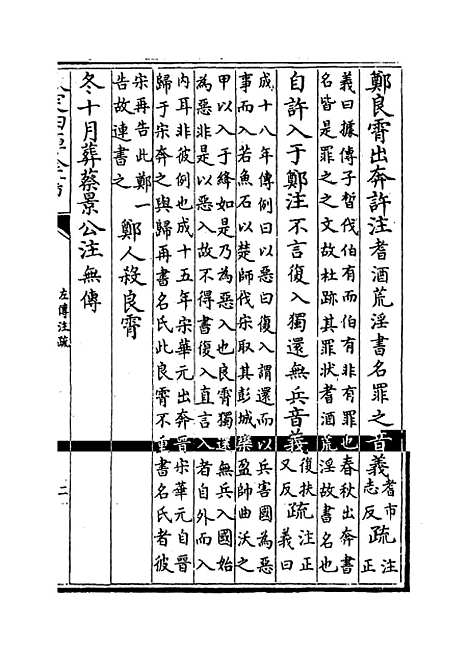 鄭良霄出奔許注耆酒荒淫書名罪之音義耆市志反疏注正
義曰據傳子晳伐伯有而伯有非有罪也春秋出奔書
名皆是罪之之文故杜跡其罪狀耆酒荒淫故書名也
自許入于鄭注不言復入獨還無兵音義復扶又反疏注正義曰
成十八年傳例曰以惡曰復入謂還而以兵害國為惡
事而入若魚石以楚師伐宋取其彭城欒盈帥曲沃之
甲以入于絳如是乃為惡入也良霄獨還無兵入國始
為惡非是以惡入故不得書復入直言入者自外而入
内耳非彼例也成十五年宋華元出奔晉宋華元自晉
歸于宋奔之與歸再書名氏此良霄不重書名氏者彼
宋再告此鄭一
告故連書之
鄭人殺良霄
冬十月葬蔡景公注無傳
左傳注疏
二